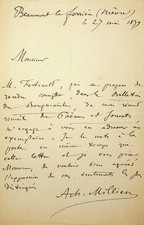 Beaumont la Ferrière (Nièvre)
le 27 mai 18
Monsieur
M. qui se propose de
rendre compte, dans le Bulletin
du Bouquiniste, de mon
recueil de Poèmes et Sonnets
m'engage à vous en adresser un
exemplaire. Je le mets à la
poste en même temps que
cette lettre et je vous prie
Monsieur, de vouloir bien agréer
l'expression de mes sentiments les plus
distingués
Ach. Millien